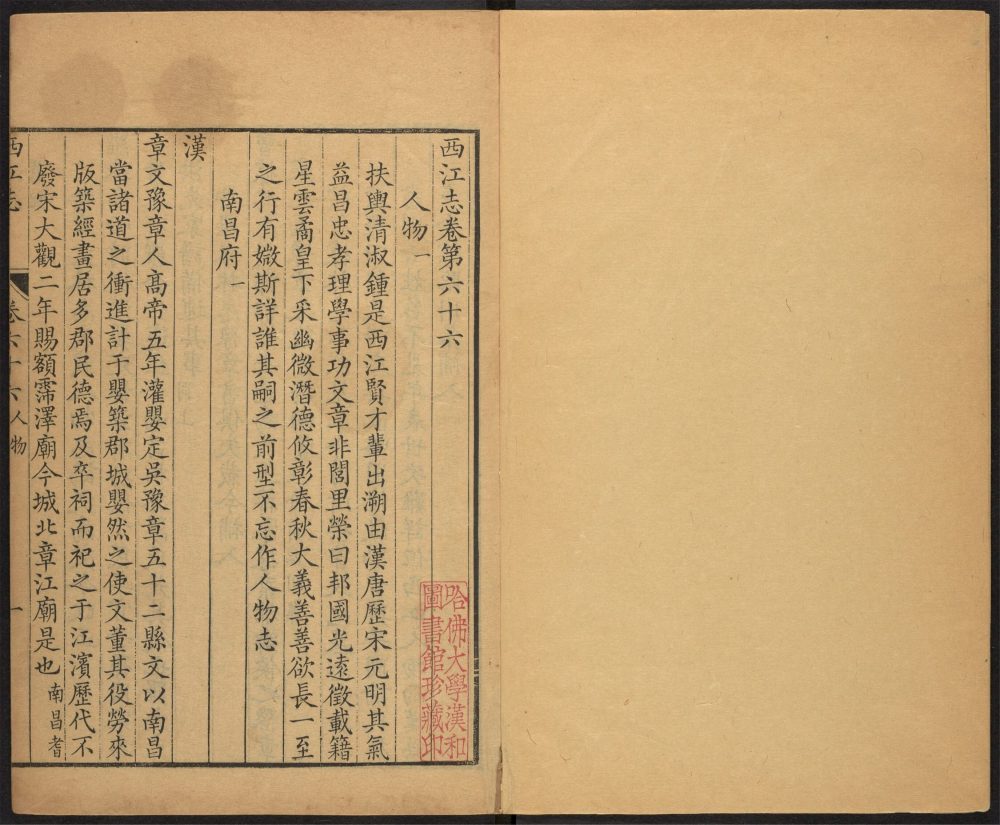 西江志卷第六十六
人物一
扶輿清淑鍾是西江賢才輩出溯由漢唐歷宋元明其氣
益昌忠孝理學事功文章非閭里榮曰邦國光遠徵載籍
星雲矞皇下采幽微潛德攸彰春秋大義善善欲長一至
之行有媺斯詳誰其嗣之前型不忘作人物志
南昌府一
漢
章文豫章人髙帝五年灌嬰定吳豫章五十二縣文以南昌
當諸道之衝進計于嬰築郡城嬰然之使文董其役勞來
版築經畫居多郡民德焉及卒祠而祀之于江濱歷代不
廢宋大觀二年賜額霈澤廟今城北章江廟是也南昌耆
西江志
卷六十六人物
一
哈佛大學漢和
圖書館珍藏印